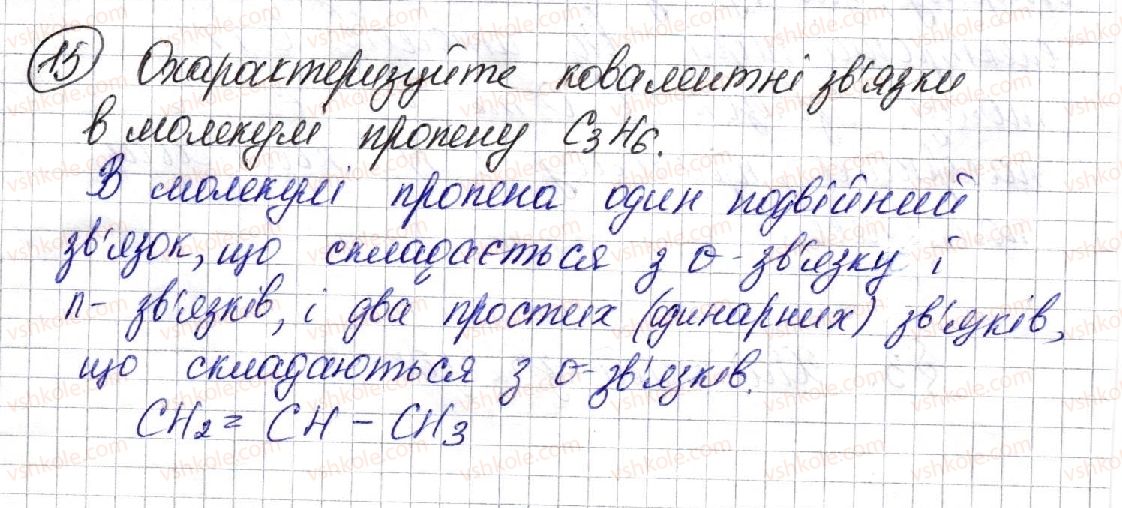 15 Охарактеризуйте ковалентні зв'язки
в молекулі пропену C3H6.
В молекулі пропена один подвійний
зв'язок, що складається з σ-зв'язку і
п- зв'язків, і два простих (одинарних) зв'язків,
що складаються з σ-зв'язків.
CH2 = CH - CH3